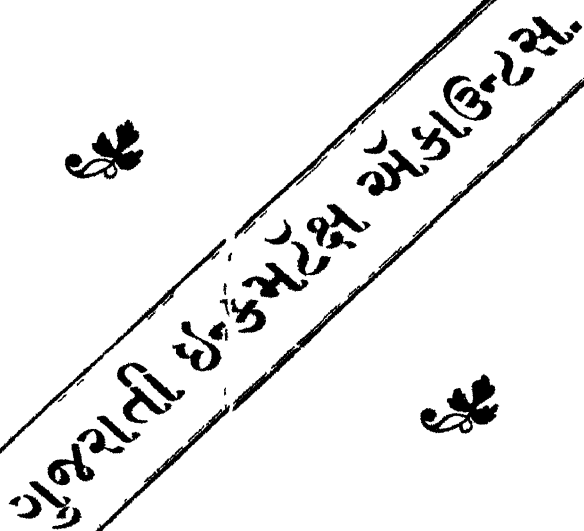 ગુજરાતી ઇન્કમટૅક્ષ ઍકાઉન્ટસ.